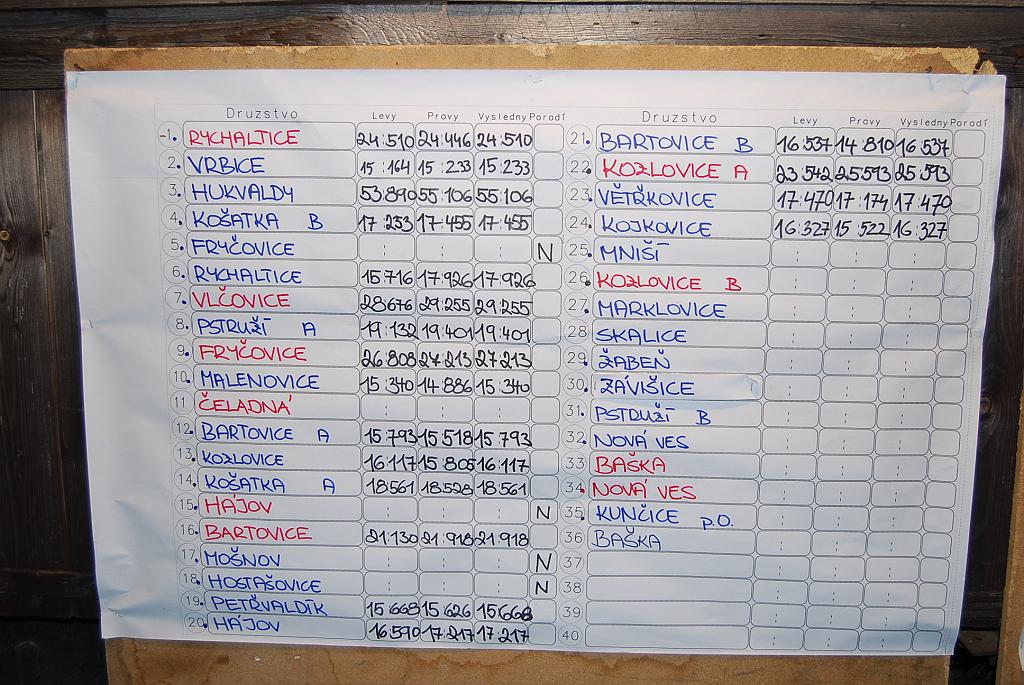 Druzstvo Levy Pravy Vysledny Poradi
1. RYCHALTICE 24:510 24:446 24:510
2. VRBICE 15:164 15:233 15:233
3. HUKVALDY 53:890 55:106 55:106
4. KOŠATKA B 17:233 17:455 17:455
5. FRYČOVICE N
6. RYCHALTICE 15:716 17:926 17:926
7. VLČOVICE 28:676 29:255 29:255
8. PSTRUŽÍ A 19:132 19:401 19:401
9. FRYČOVICE 26:808 27:213 27:213
10. MALENOVICE 15:340 14:886 15:340
11 ČELADNÁ
12. BARTOVICE A 15:793 15:518 15:793
13. KOZLOVICE 16:117 15:805 16:117
14. KOŠATKA A 18:561 18:528 18:561
15. HÁJOV N
16. BARTOVICE 21:130 21:918 21:918
17. MOŠNOV N
18. HOSTAŠOVICE N
19. PETŘVALDÍK 15:668 15:626 15:668
20. HÁJOV 16:590 17:217 17:217
Druzstvo Levy Pravy Vysledny Poradi
21. BARTOVICE B 16:537 14:810 16:537
22. KOZLOVICE A 23:542 25:593 25:593
23. VĚTŘKOVICE 17:470 17:174 17:470
24. KOJKOVICE 16:327 15:522 16:327
25. MNIŠÍ
26. KOZLOVICE B
27. MARKLOVICE
28 SKALICE
29. ŽABEŇ
30. ZÁVIŠICE
31. PSTRUŽÍ B
32. NOVÁ VES
33 BAŠKA
34. NOVÁ VES
35. KUNČICE p.O.
36 BAŠKA
37
38
39
40